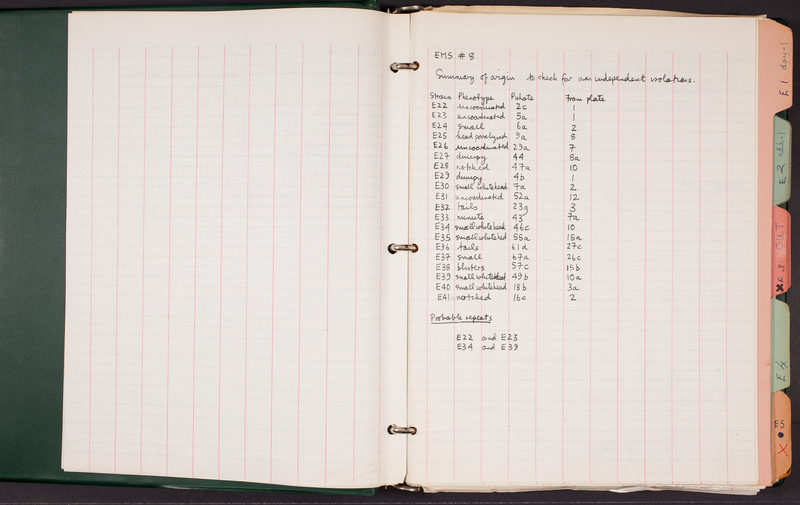 EMS # 8
Summary of origin to check for non independent isolations.
Strain Phenotype Pickate From plate
E22 uncoordinated 2c 1
E23 uncoordinated 5a 1
E24 small 6a 2
E25 head paralysed 9a 8
E26 uncoordinated 29a 7
E27 dumpy 44 8a
E28 notched 47a 10
E29 dumpy 4b 1
E30 small whitehead 7a 2
E31 uncoordinated 52a 12
E32 tails 23g 3
E33 minute 43 7a
E34 small white head 46c 10
E35 small whitehead 55a 15a
E36 tails 61d 27c
E37 small 67a 26c
E38 blisters 57c 15b
E39 small whitehead 49b 10a
E40 small whitehead 18b 3a
E41 notched 16c 2
Probable repeats
E22 and E23
E34 and E39
E1
E2
E3 OUT
E5
X